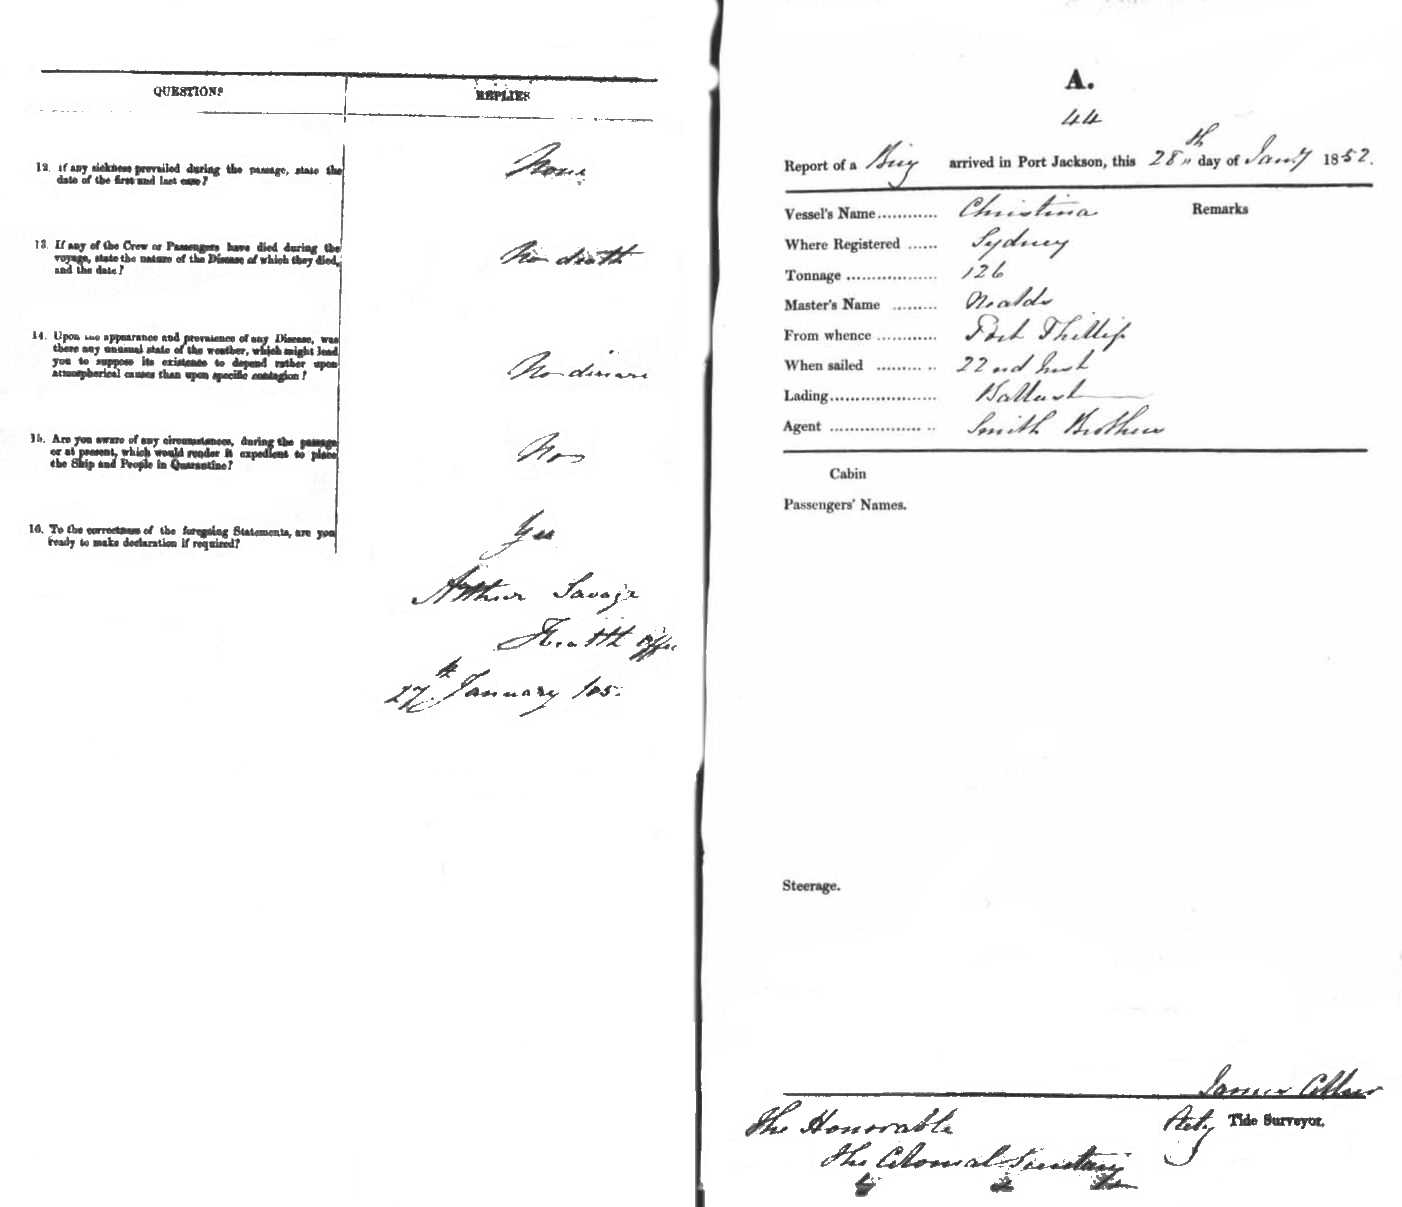 QUESTIONS
REPLIES
12. If any sickness prevailed during the passage, state the
date of the first and last case?
None
13. If any of the Crew or Passengers have died during the
voyage, state the nature of the Disease of which they died,
and the date?
No death
14. Upon the appearance and prevalence of any Disease, was
there any unusual state of the weather, which might lead
you to suppose its existence to depend rather upon
atmospherical causes than upon specific contagion?
No disease
15. Are you aware of any circumstances, during the passage
or at present, which would render it expedient to place
the Ship and People in Quarantine?
No
16. To the correctness of the foregoing Statements, are you
ready to make declaration if required?
Yes
Arthur Savage
Health Offr
27th January 185
A.
44
Report of a Brig arrived in Port Jackson, this 28th day of Jany 1852.
Vessel's Name............ Christina
Remarks
Where Registered ...... Sydney
Tonnage .................. 126
Master's Name .........
From whence ............ Port Phillip
When sailed ......... .. 22nd Inst
Lading..................... Ballast
Agent .................. .. Smith Brothers
Cabin
Passengers' Names.
Steerage.
James
Acty Tide Surveyor.
The Honorable
The Colonial Secretary